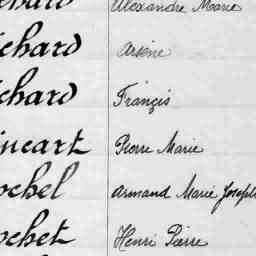 chard Alexandre Marie
chard Arsène
chard François
incart Pierre Marie
ochel Armand Marie Joseph
ochet Henri Pierre